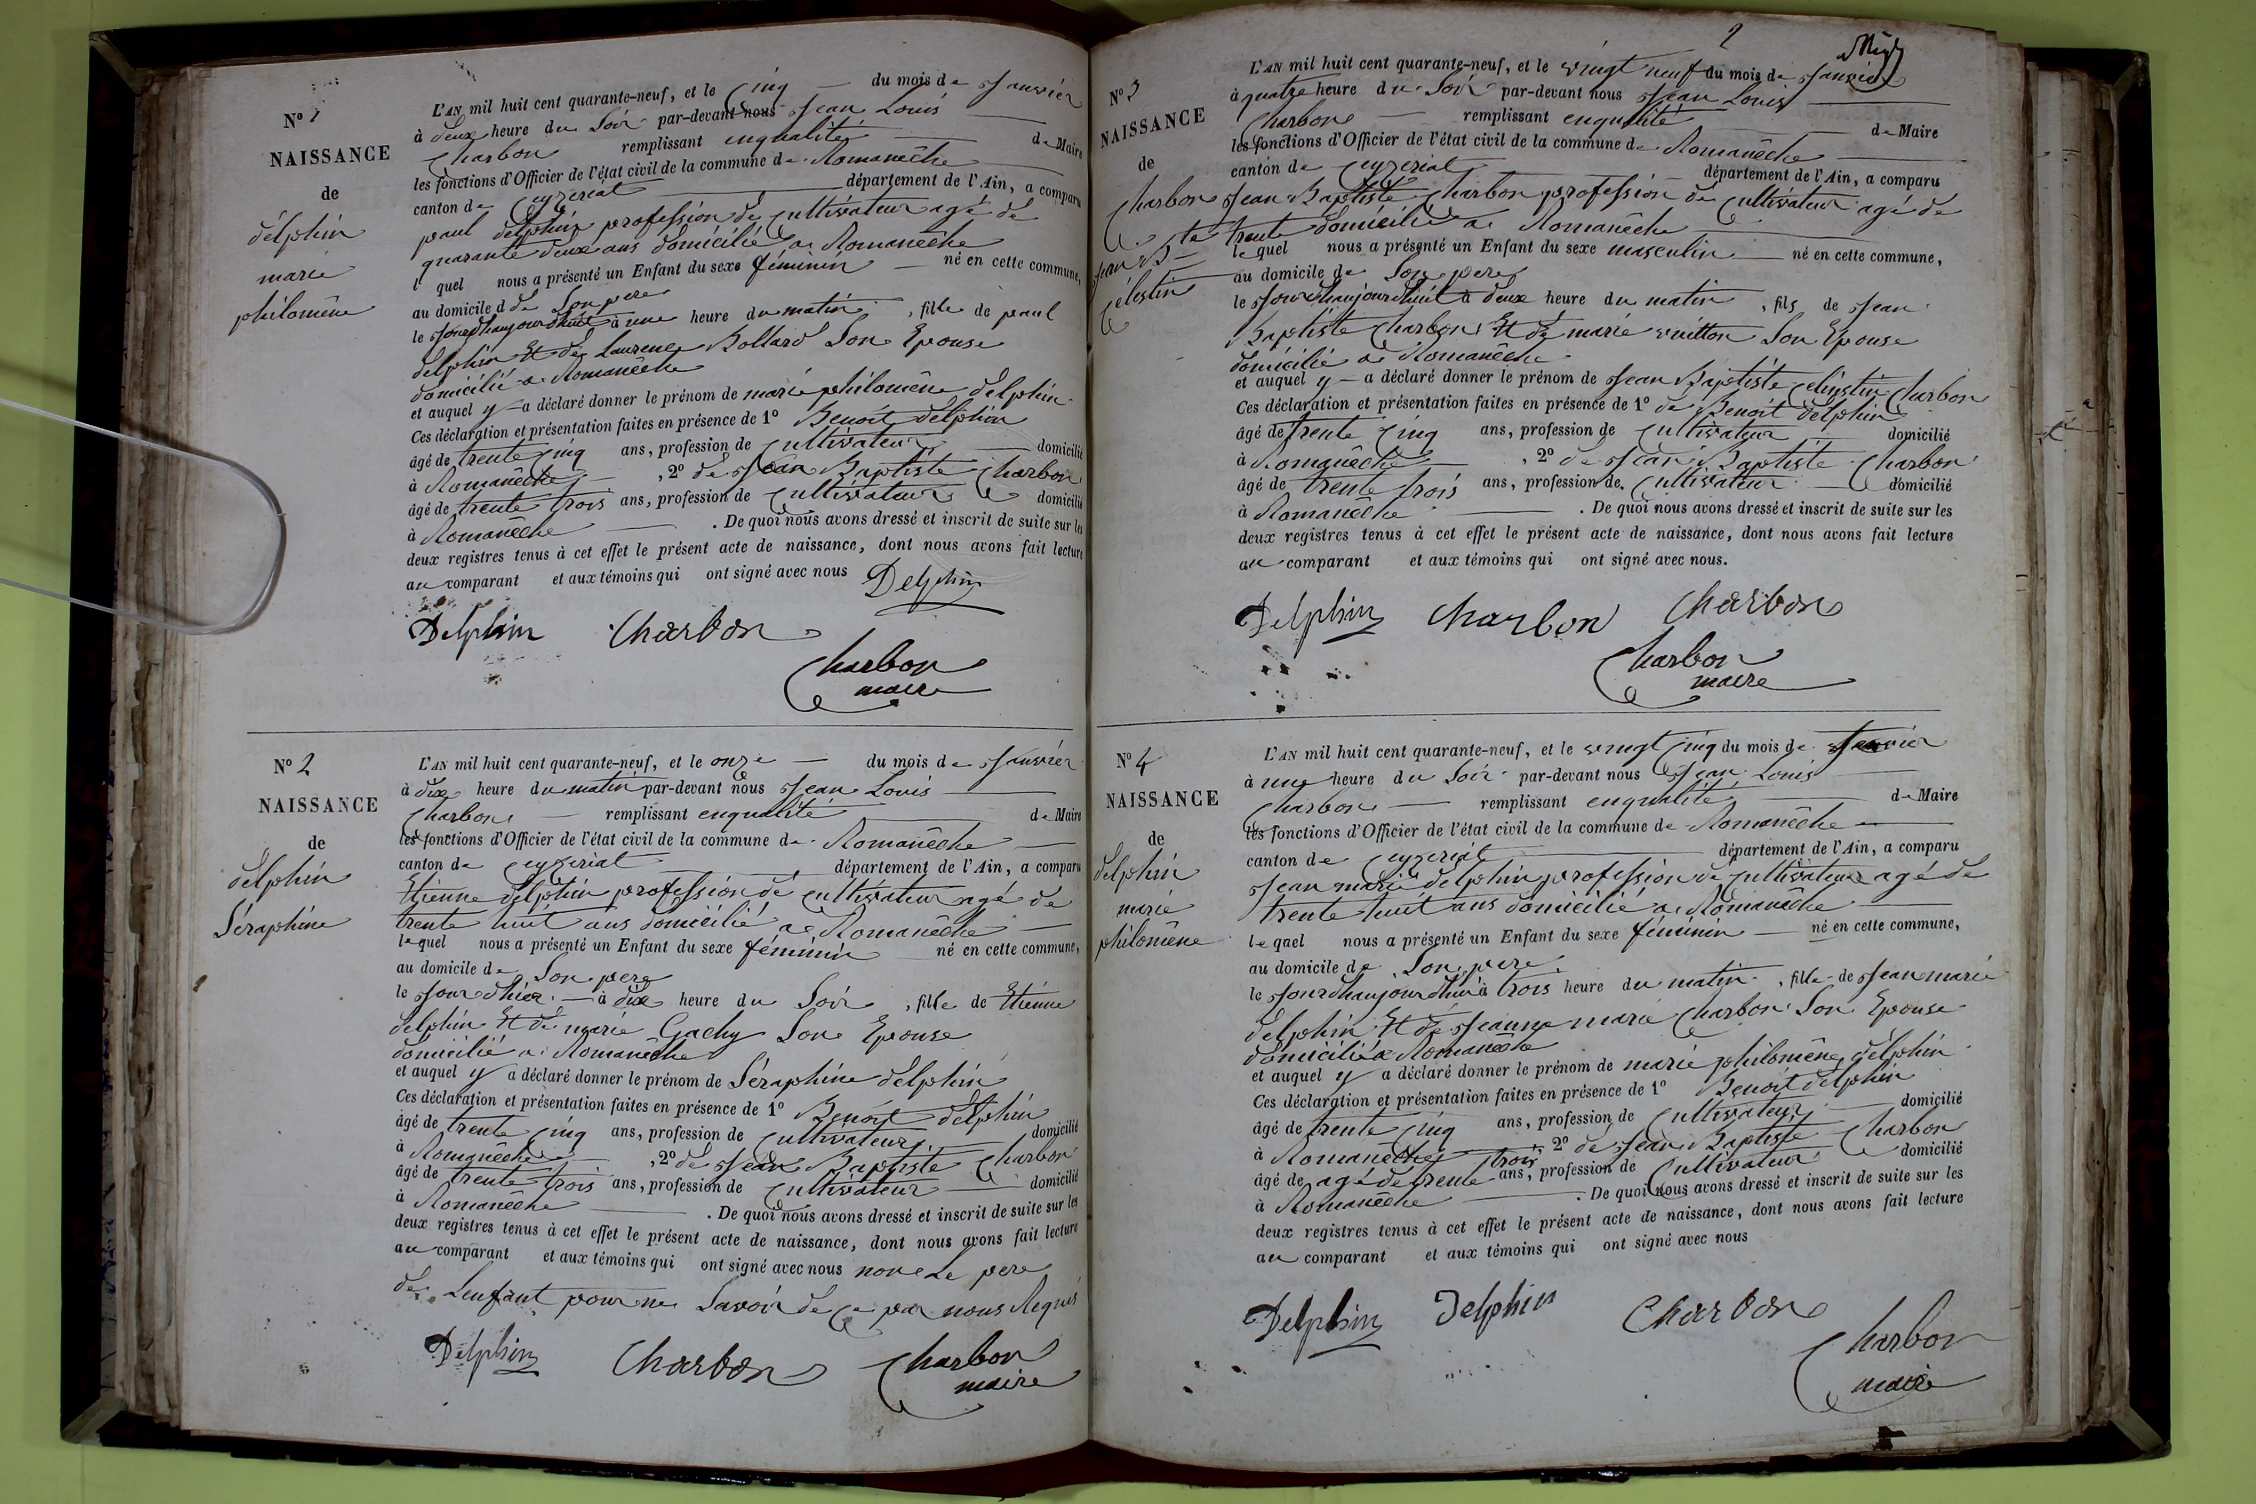 N° 1
NAISSANCE
de
délphin
marie
philomène
L'AN mil huit cent quarante-neuf, et le cinq du mois de Janvier
à deux heure du Soir par-devant nous Jean Louis
Charbon remplissant enqualité de Maire
les fonctions d'Officier de l'état civil de la commune de Romanêche
canton de Ceyzeriat département de l'Ain, a comparu
paul delphin profession de Cultivateur agé de
quarante deux ans domicilié a Romanêche
l quel nous a présenté un Enfant du sexe féminin né en cette commune,
au domicile d de Son pere
le Jourdhaujourdhuit à une heure du matin, fille de paul
delphin Et de Laurence Bollard Son Epouse
domicilié a Romanêche
et auquel y a déclaré donner le prénom de marie philomène delphin
Ces déclaration et présentation faites en présence de 1° Benoit delphin
âgé de trente cinq ans, profession de Cultivateur domicilié
à Romanêche, 2° de Jean Baptiste Charbon
âgé de trente trois ans, profession de Cultivateur domicilié
à Romanêche. De quoi nous avons dressé et inscrit de suite sur les
deux registres tenus à cet effet le présent acte de naissance, dont nous avons fait lecture
au comparant et aux témoins qui ont signé avec nous Delphin
Delphin Charbon
Charbon
maire
N° 2
NAISSANCE
de
delphin
Séraphine
L'AN mil huit cent quarante-neuf, et le onze du mois de Janvier
à dix heure du matin par-devant nous Jean Louis
Charbon remplissant enqualité de Maire
les fonctions d'Officier de l'état civil de la commune de Romanêche
canton de Ceyzeriat département de l'Ain, a comparu
Etienne delphin profession de cultivateur agé de
trente huit ans domicilié a Romanêche
lequel nous a présenté un Enfant du sexe féminin né en cette commune,
au domicile de Son pere
le Jour dhier à dix heure du Soir, fille de Etienne
delphin Et de marie Gachy Son Epouse
domicilié a Romanêche
et auquel y a déclaré donner le prénom de Séraphine delphin
Ces déclaration et présentation faites en présence de 1° Benoit delphin
âgé de trente cinq ans, profession de Cultivateur domicilié
à Romanêche, 2° de Jean Baptiste Charbon
âgé de trente trois ans, profession de Cultivateur domicilié
à Romanêche. De quoi nous avons dressé et inscrit de suite sur les
deux registres tenus à cet effet le présent acte de naissance, dont nous avons fait lecture
au comparant et aux témoins qui ont signé avec nous non Le pere
de Lenfant pour ne Savoir de ce par nous Requis
Delphin Charbon Charbon
maire
2
N° 3
NAISSANCE
de
Charbon
Jean Bte
Célestin
L'AN mil huit cent quarante-neuf, et le vingt neuf du mois de Janvier
à quatre heure du Soir par-devant nous Jean Louis
Charbon remplissant enqualité de Maire
les fonctions d'Officier de l'état civil de la commune de Romanêche
canton de Ceyzeriat département de l'Ain, a comparu
Jean Baptiste Charbon profession de Cultivateur agé de
trente domicilié a Romanêche
lequel nous a présenté un Enfant du sexe masculin né en cette commune,
au domicile de Son pere
le Jourdhaujourdhuit à deux heure du matin, fils de Jean
Baptiste Charbon Et de marie vuitton Son Epouse
domicilié a Romanêche
et auquel y a déclaré donner le prénom de Jean Baptiste Celinstin Charbon
Ces déclaration et présentation faites en présence de 1° de Benoit delphin
âgé de trente cinq ans, profession de Cultivateur domicilié
à Romanêche, 2° de Jean Baptiste Charbon
âgé de trente trois ans, profession de Cultivateur domicilié
à Romanêche. De quoi nous avons dressé et inscrit de suite sur les
deux registres tenus à cet effet le présent acte de naissance, dont nous avons fait lecture
au comparant et aux témoins qui ont signé avec nous.
Delphin Charbon Charbon
Charbon
maire
N° 4
NAISSANCE
de
delphin
marie
philomène
L'AN mil huit cent quarante-neuf, et le vingt cinq du mois de Janvier
à une heure du Soir par-devant nous Jean Louis
Charbon remplissant enqualité de Maire
les fonctions d'Officier de l'état civil de la commune de Romanêche
canton de Ceyzeriat département de l'Ain, a comparu
Jean marie delphin profession de Cultivateur agé de
trente huit ans domicilié a Romanêche
lequel nous a présenté un Enfant du sexe féminin né en cette commune,
au domicile de Son pere
le Jourdhaujourdhui à trois heure du matin, fille de Jean marie
delphin Et de Jeanne marie Charbon Son Epouse
domicilié a Romanêche
et auquel y a déclaré donner le prénom de marie philomène delphin
Ces déclaration et présentation faites en présence de 1° Benoit delphin
âgé de trente cinq ans, profession de Cultivateur domicilié
à Romanêche, 2° de Jean Baptiste Charbon
âgé de agé de trente trois ans, profession de Cultivateur domicilié
à Romanêche. De quoi nous avons dressé et inscrit de suite sur les
deux registres tenus à cet effet le présent acte de naissance, dont nous avons fait lecture
au comparant et aux témoins qui ont signé avec nous
Delphin Delphin Charbon
Charbon
maire